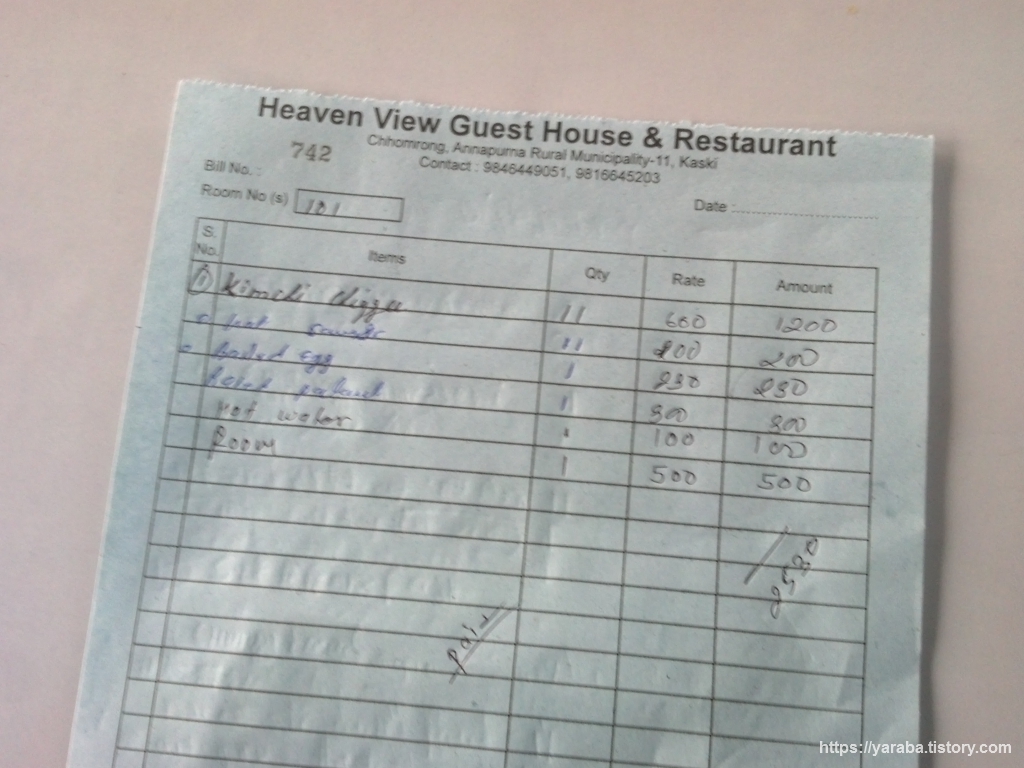 Heaven View Guest House & Restaurant
Chhomrong, Annapurna Rural Municipality-11, Kaski
Contact : 9846449051, 9816645203
Bill No. : 742
Room No (s) 101 Date :
S. No. Items Qty Rate Amount
1 11 600 1200
11 200 200
boiled egg 1 230 250
1 300 300
Hot water 1 100 100
Room 1 500 500
paid
https://yaraba.tistory.com